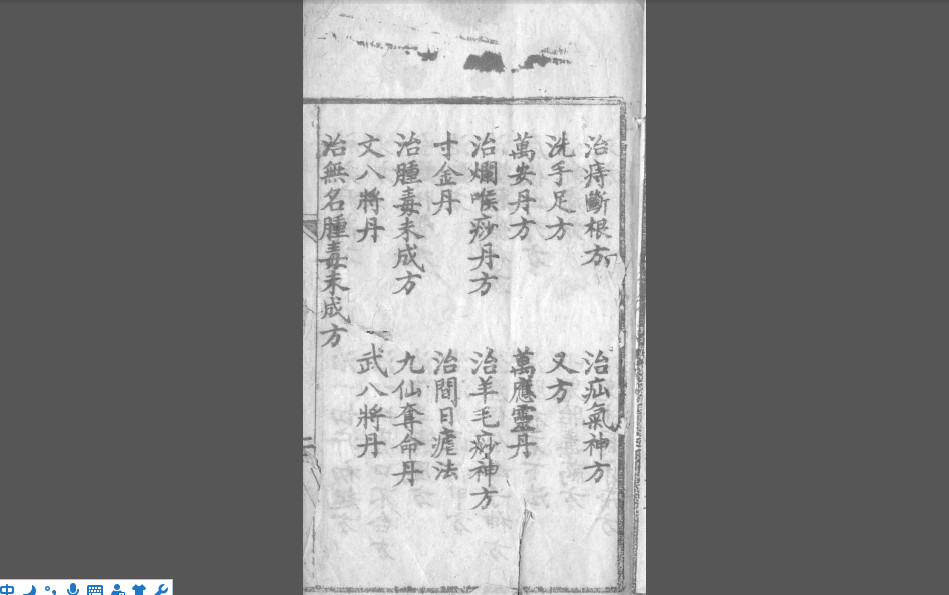 治痔斷根方 治疝氣神方
洗手足方 又方
萬安丹方 萬應靈丹
治爛喉痧丹方 治羊毛痧神方
寸金丹 治間日瘧法
治腫毒未成方 九仙奪命丹
文八將丹 武八將丹
治無名腫毒未成方
二
中